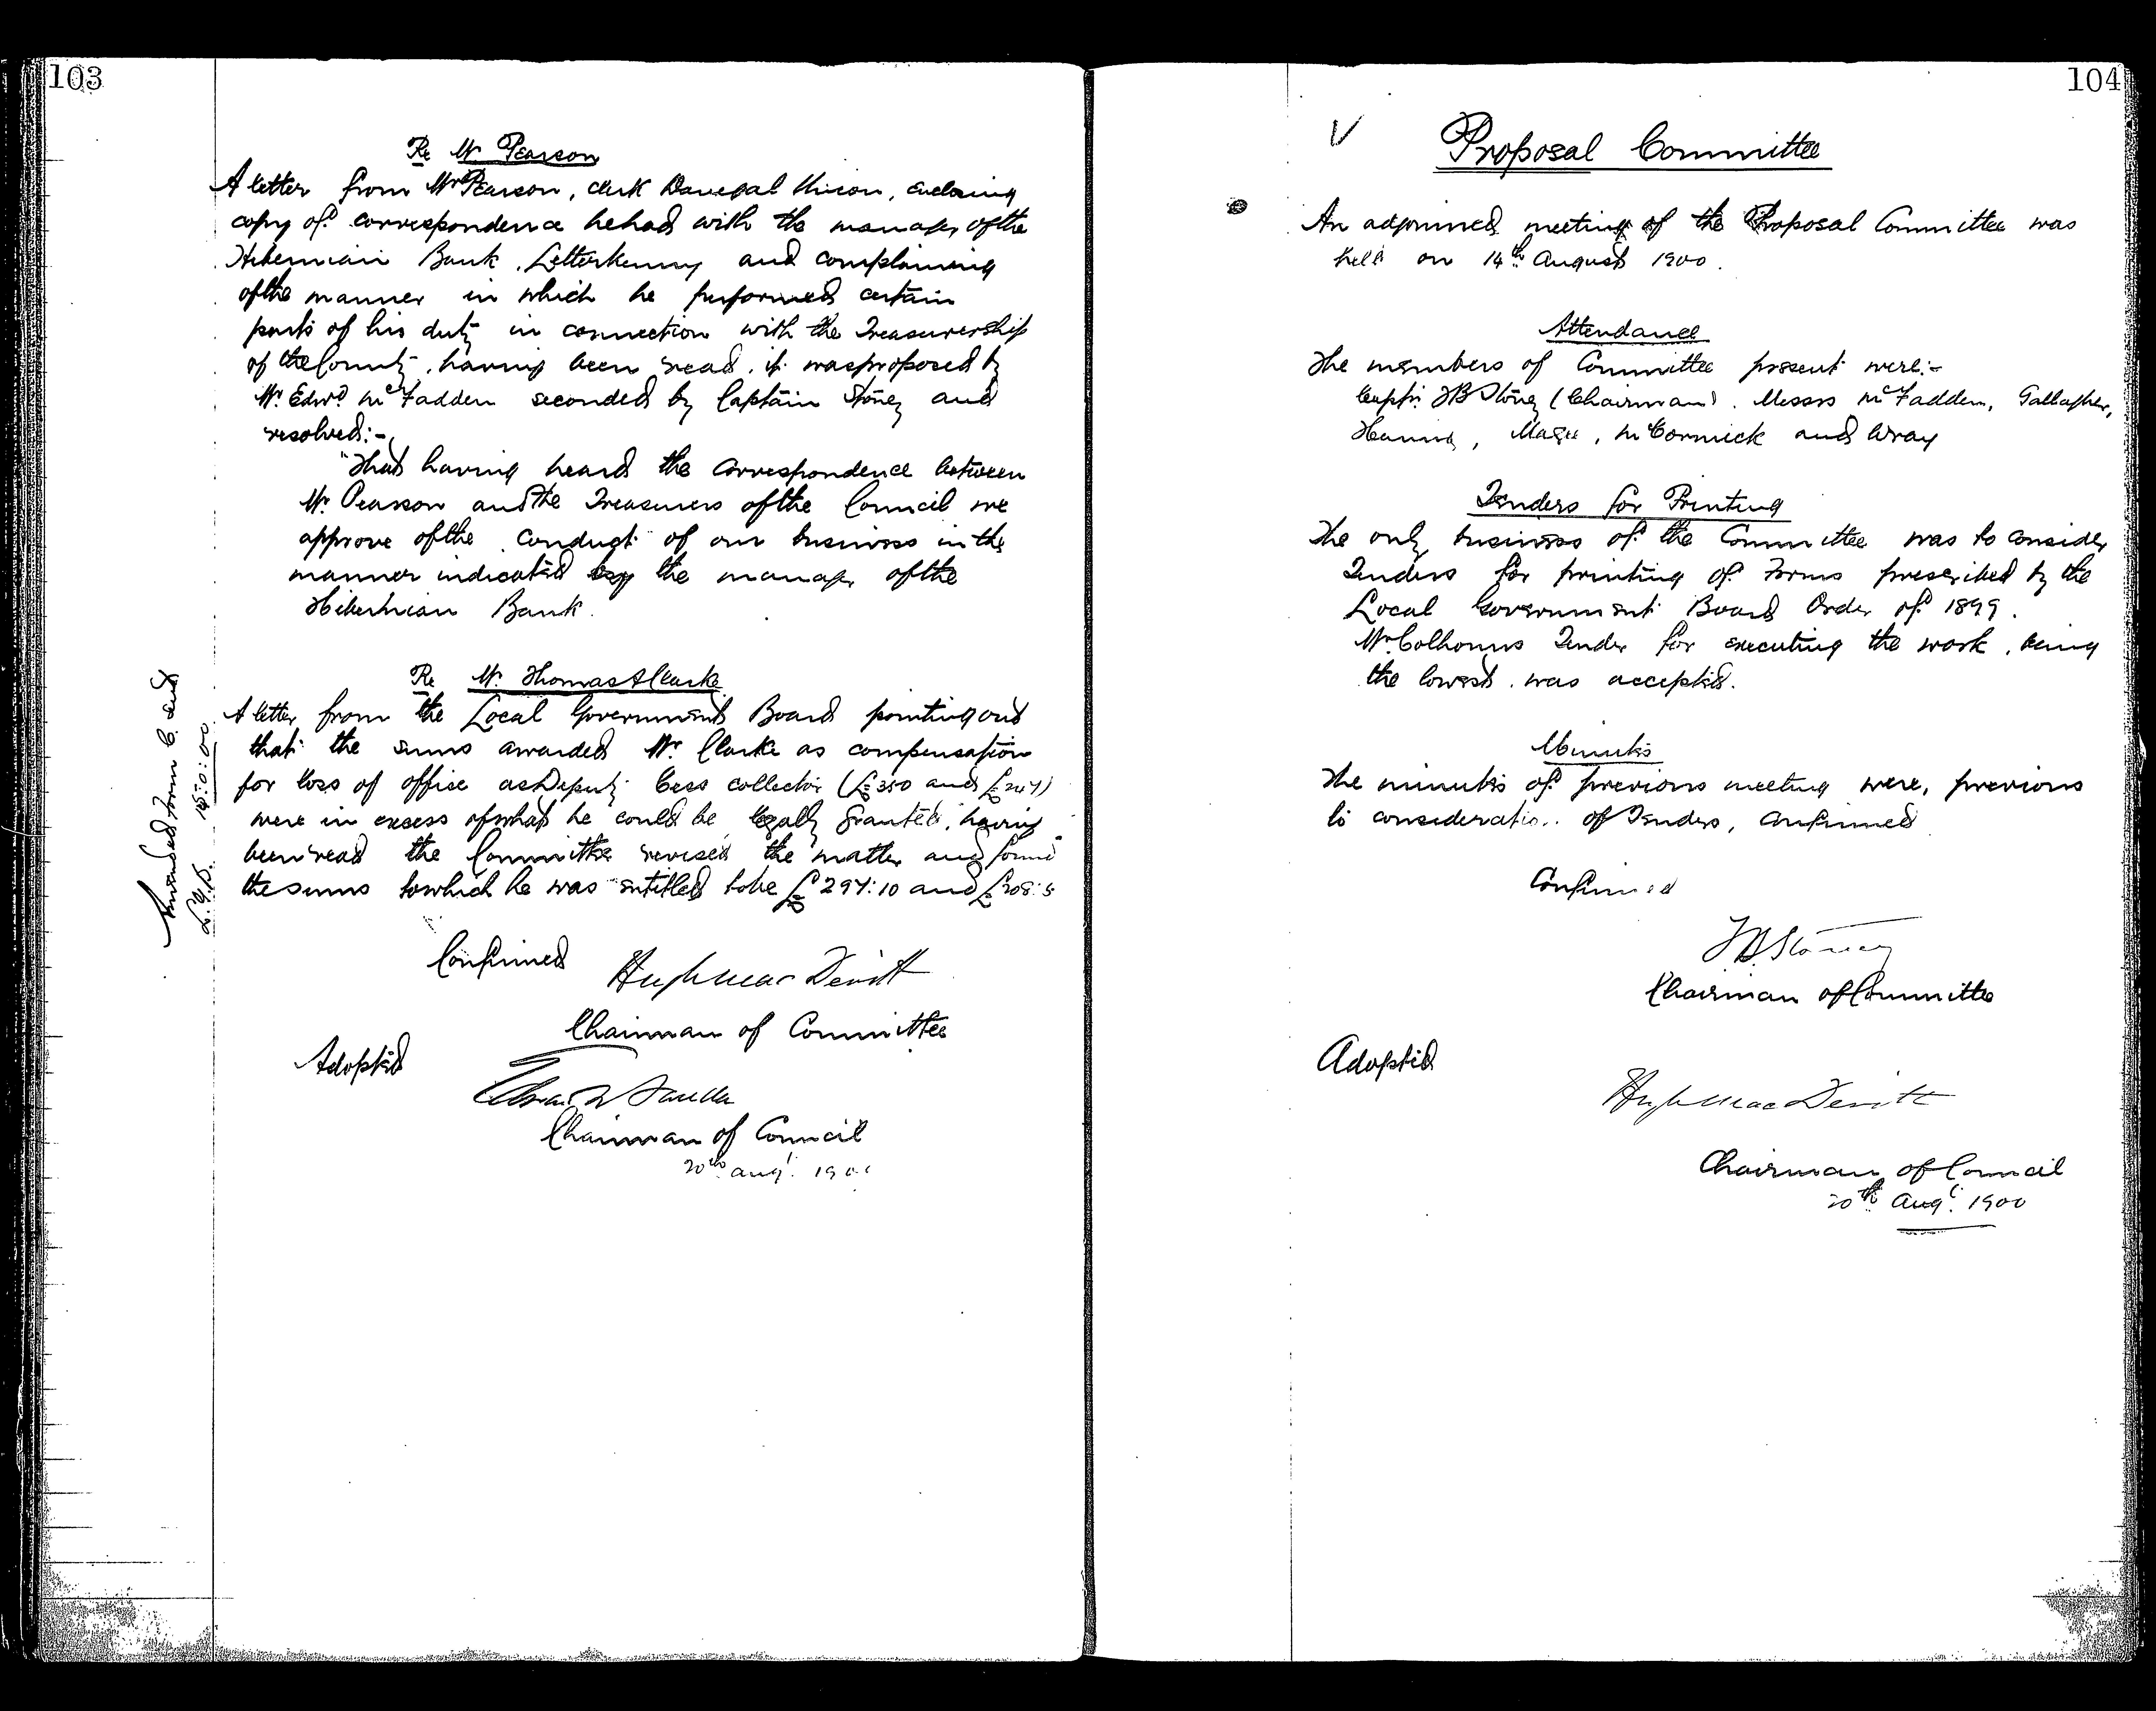 103
Re Mr Pearson
A letter from Mr Pearson, clerk Donegal Union, enclosing
copy of correspondence he had with the manager of the
Hibernian Bank, Letterkenny and complaining
of the manner in which he performed certain
parts of his duty in connection with the Treasurership
of the County, having been read, it was proposed by
Mr. Edwd. McFadden seconded by Captain Stoney and
resolved:-
"That having heard the correspondence between
Mr. Pearson and the Treasurers of the Council we
approve of the conduct of our business in the
manner indicated by the manager of the
Hibernian Bank.
Re Mr. Thomas A Clarke
A letter from the Local Government Board pointing out
that the sums awarded Mr. Clarke as compensation
for loss of office as Deputy Cess collector (£350 and £247)
were in excess of what he could be legally granted, having
been read the Committee revised the matter and found
the sums to which he was entitled to be £297:10 and £208:5
Amended Form C. sent
L.G.B. 15:0:00
Confirmed Hugh Mac Devitt
Chairman of Committee
Adopted
Chairman of Council
20th Augt. 1900
104
V Proposal Committee
An adjourned meeting of the Proposal Committee was
held on 14th August 1900.
Attendance
The members of Committee present were:-
Captn. JB Stoney (Chairman). Messrs McFadden, Gallagher,
Hanna, Magee, McCormick and Wray
Tenders for Printing
The only business of the Committee was to consider
Tenders for printing of Forms prescribed by the
Local Government Board Order of 1899.
Mr Colhouns Tender for executing the work, being
the lowest, was accepted.
Minutes
The minutes of previous meeting were, previous
to consideration of Tenders, confirmed
Confirmed
JB Stoney
Chairman of Committee
Adopted
Hugh Mac Devitt
Chairman of Council
20th Augt. 1900